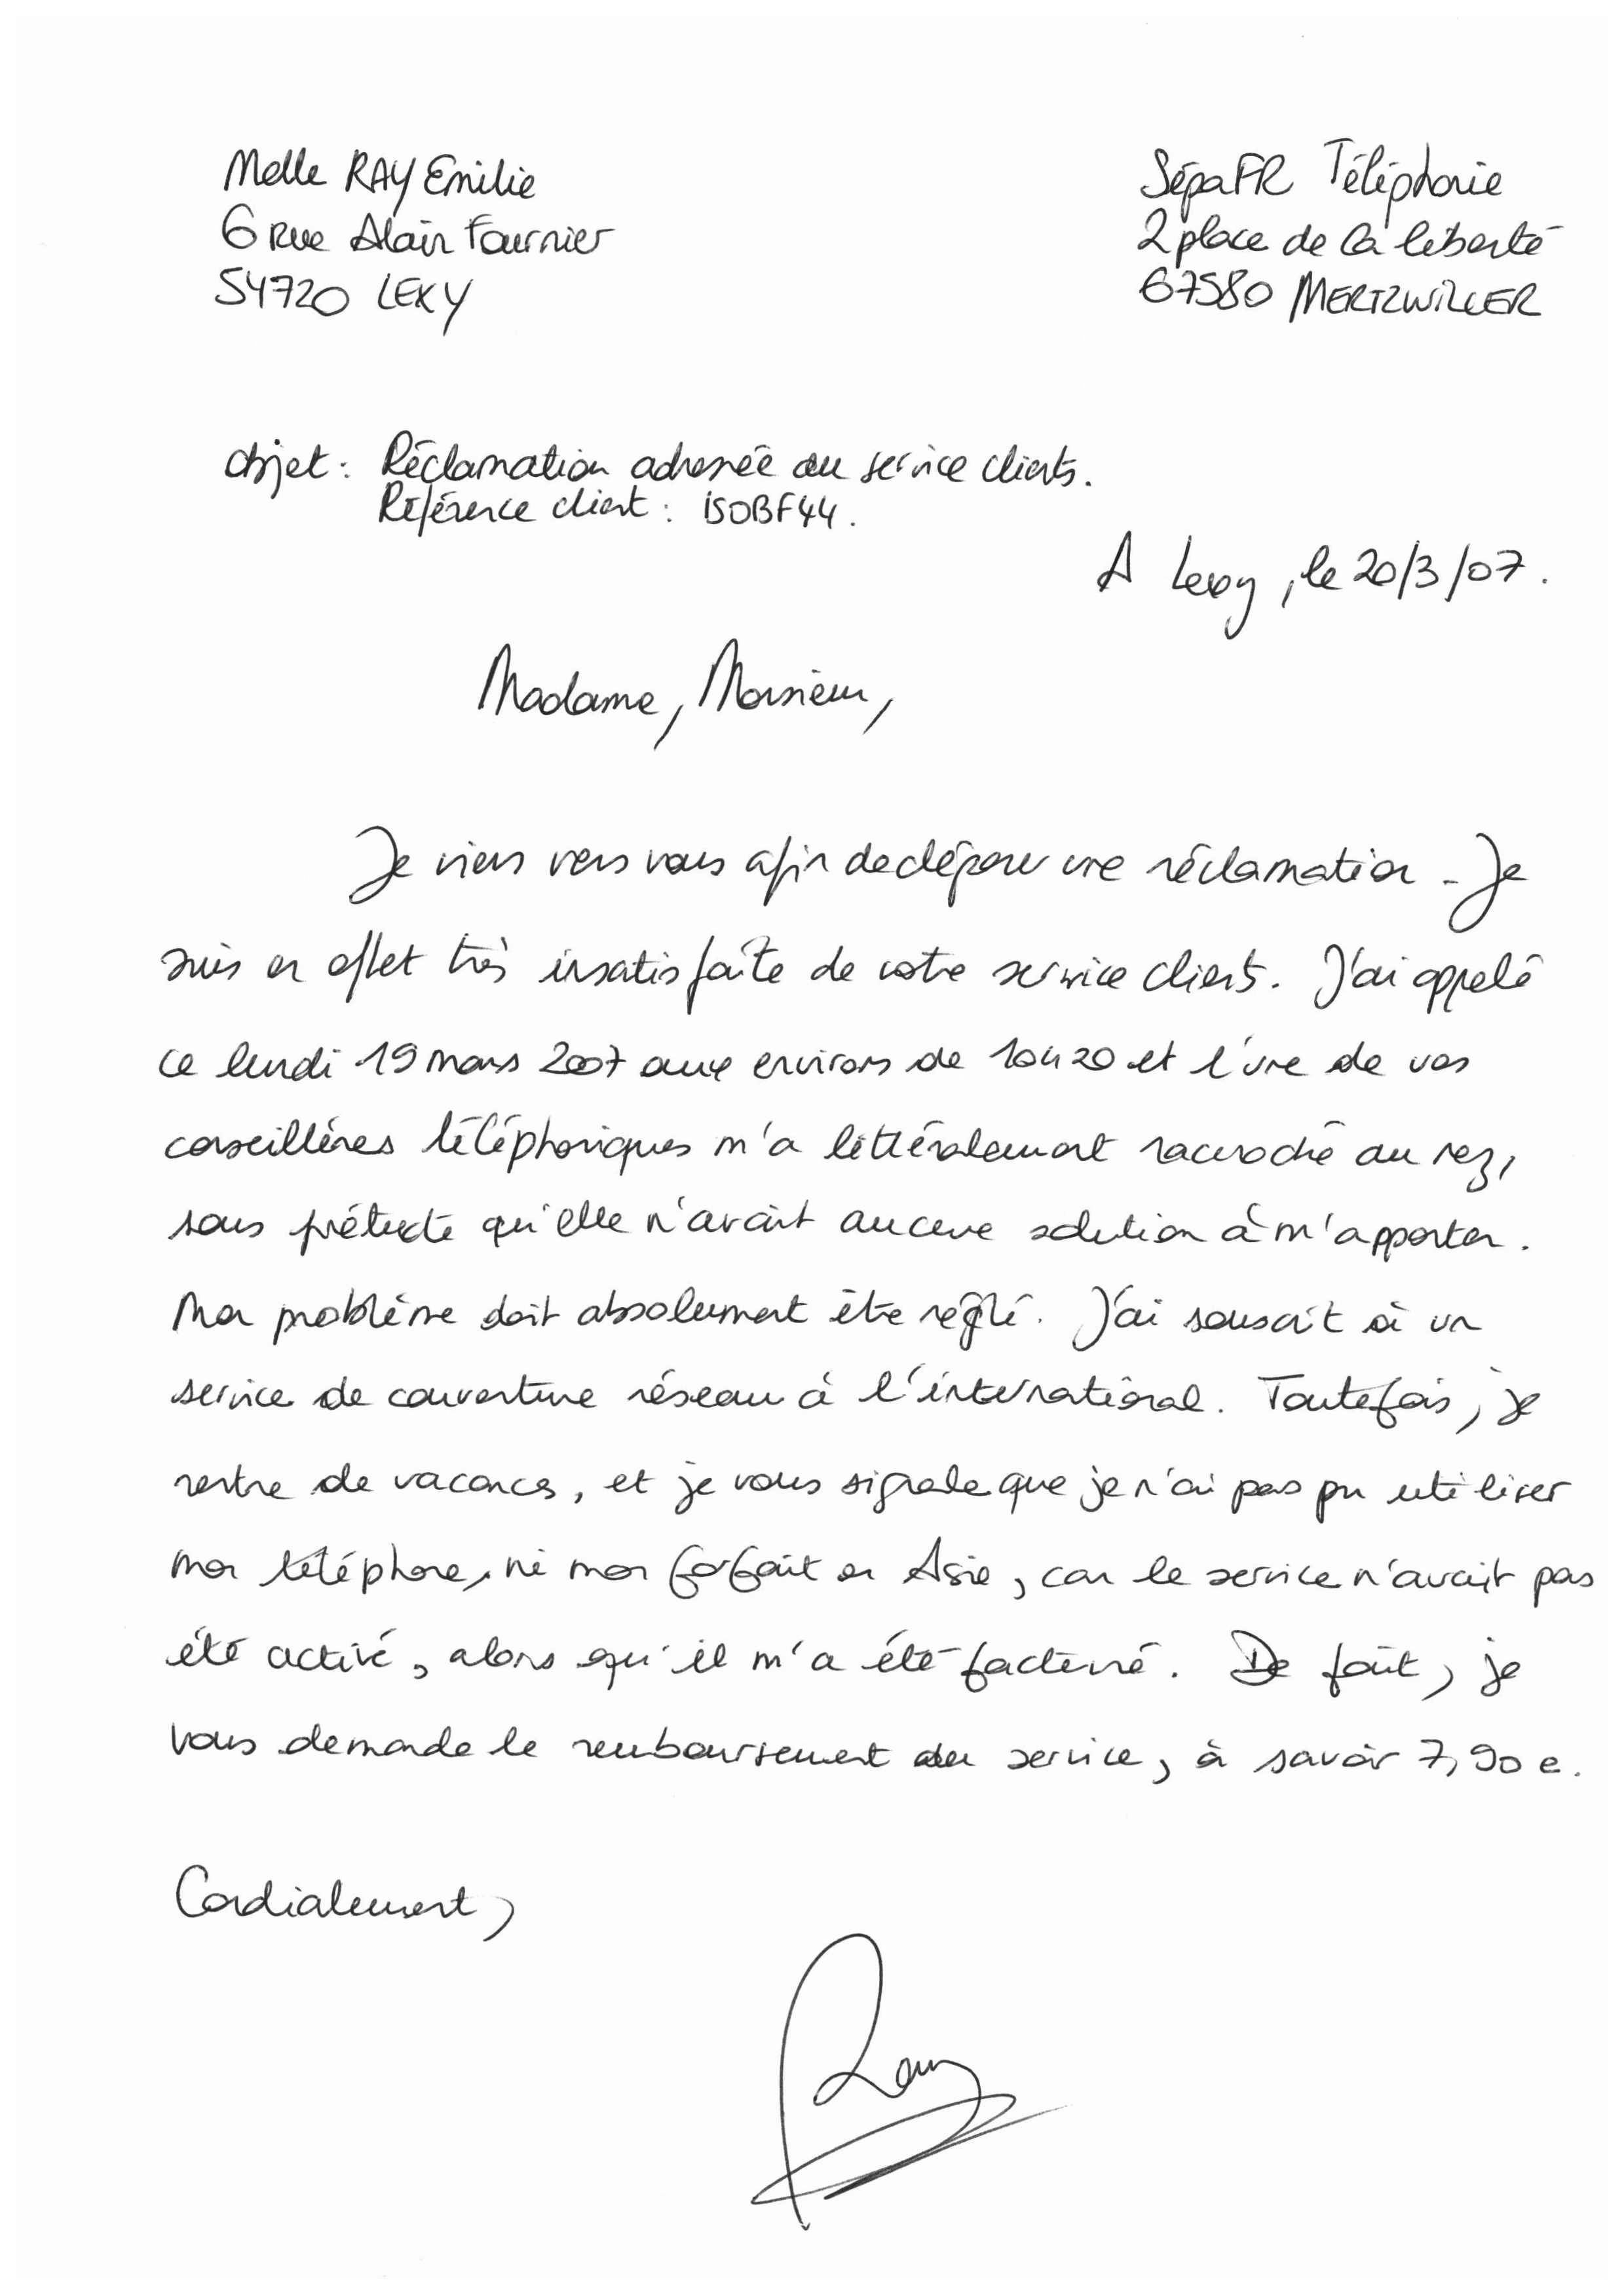 Melle RAY Emilie
6 Rue Alain Fournier
54720 LEXY
SépaFR Téléphonie
2 place de la liberté
67580 MERTZWILLER
Objet : Réclamation adressée au service clients.
Référence client : ISOBF44.
A Lexy, le 20/3/07.
Madame, Monsieur,
Je viens vers vous afin de déposer une réclamation. Je
suis en effet très insatisfaite de votre service clients. J'ai appelé
ce lundi 19 mars 2007 aux environs de 10h20 et l'une de vos
conseillères téléphoniques m'a littéralement raccroché au nez,
sous prétexte qu'elle n'avait aucune solution à m'apporter.
Mon problème doit absolument être réglé. J'ai souscrit à un
service de couverture réseau à l'international. Toutefois, je
rentre de vacances, et je vous signale que je n'ai pas pu utiliser
mon téléphone, ni mon forfait en Asie, car le service n'avait pas
été activé, alors qu'il m'a été facturé. De fait, je
vous demande le remboursement du service, à savoir 7,90 e.
Cordialement,
Ray